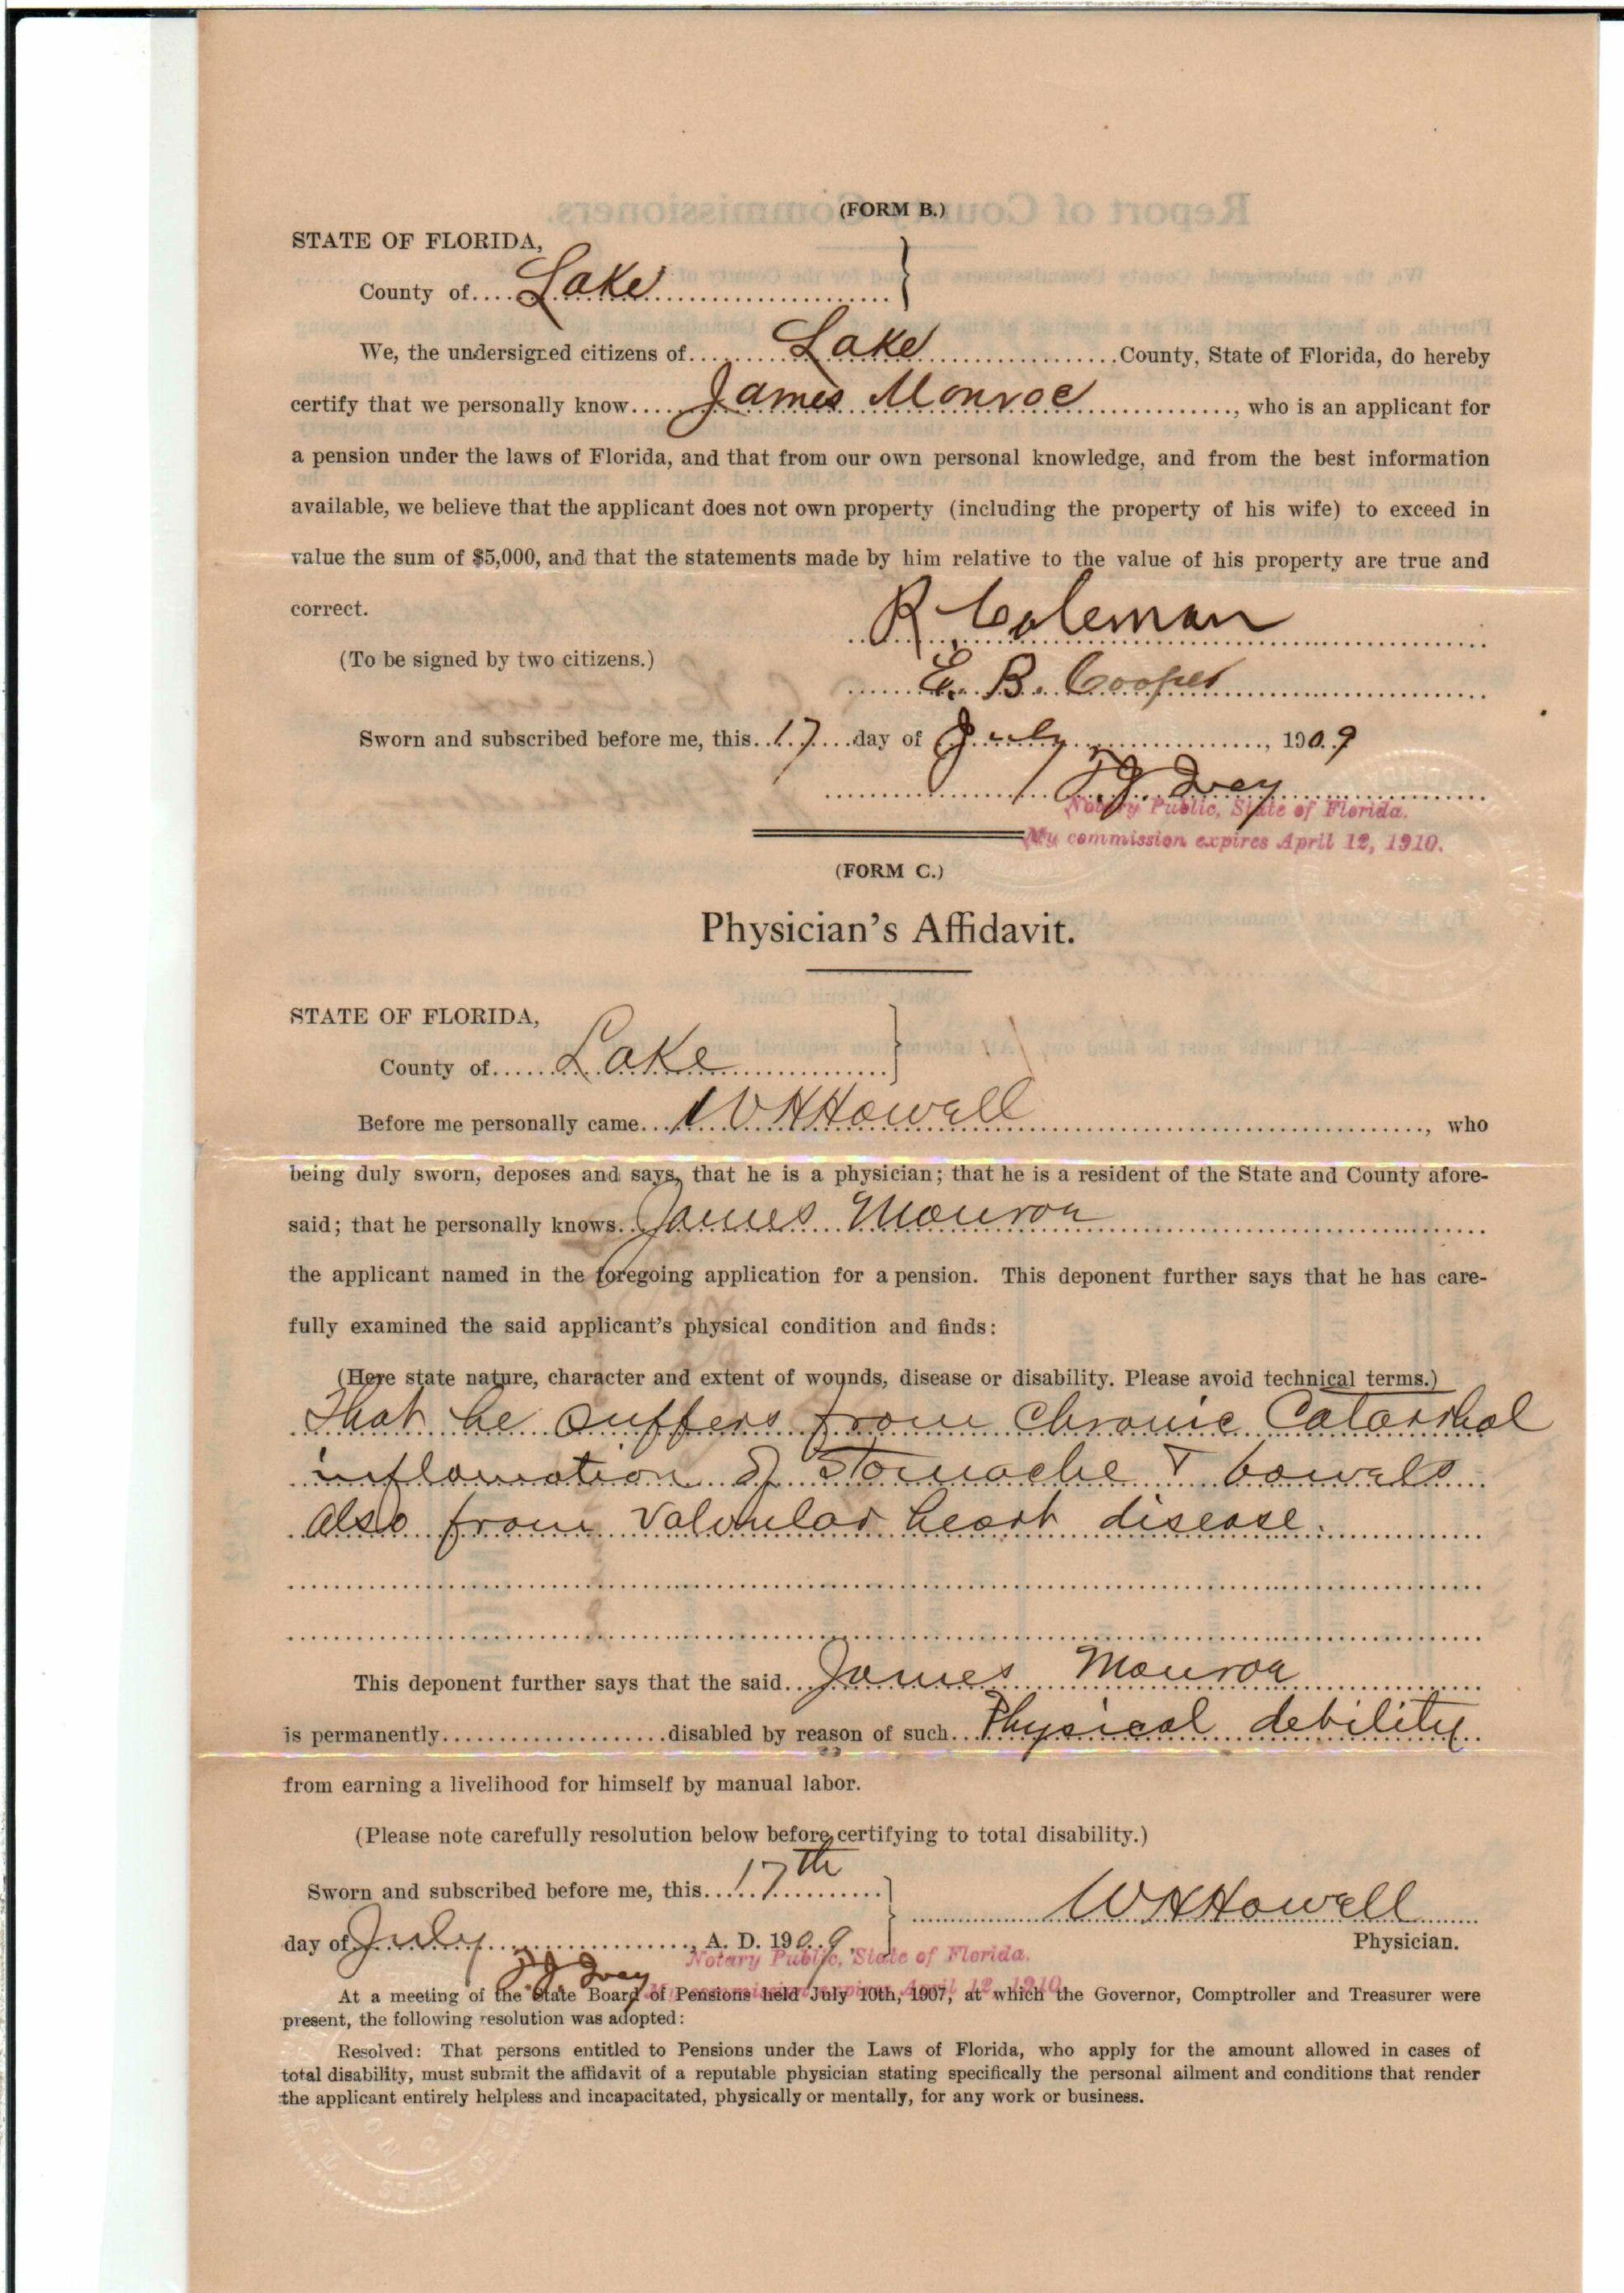 (FORM B.)
STATE OF FLORIDA,
County of.... Lake
We, the undersigned citizens of Lake County, State of Florida, do hereby
certify that we personally know James Monroe, who is an applicant for
a pension under the laws of Florida, and that from our own personal knowledge, and from the best information
available, we believe that the applicant does not own property (including the property of his wife) to exceed in
value the sum of $5,000, and that the statements made by him relative to the value of his property are true and
correct.
R Coleman
(To be signed by two citizens.)
E. B. Cooper
Sworn and subscribed before me, this 17 day of July, 1909
Ivey
Notary Public, State of Florida.
My commission expires April 12, 1910.
(FORM C.)
Physician's Affidavit.
STATE OF FLORIDA,
County of Lake
Before me personally came W H Howell, who
being duly sworn, deposes and says, that he is a physician; that he is a resident of the State and County afore-
said; that he personally knows James Monroe
the applicant named in the foregoing application for a pension. This deponent further says that he has care-
fully examined the said applicant's physical condition and finds:
(Here state nature, character and extent of wounds, disease or disability. Please avoid technical terms.)
That he suffers from Chronic Catarrhal
inflamation of Stomache & bowels
also from Valvular heart disease.
This deponent further says that the said James Monroe
is permanently disabled by reason of such Physical debility
from earning a livelihood for himself by manual labor.
(Please note carefully resolution below before certifying to total disability.)
Sworn and subscribed before me, this 17th
W H Howell
day of July, A. D. 1909.
Physician.
Notary Public, State of Florida.
Ivey
My commission expires April 12, 1910
At a meeting of the State Board of Pensions held July 10th, 1907, at which the Governor, Comptroller and Treasurer were
present, the following resolution was adopted:
Resolved: That persons entitled to Pensions under the Laws of Florida, who apply for the amount allowed in cases of
total disability, must submit the affidavit of a reputable physician stating specifically the personal ailment and conditions that render
the applicant entirely helpless and incapacitated, physically or mentally, for any work or business.